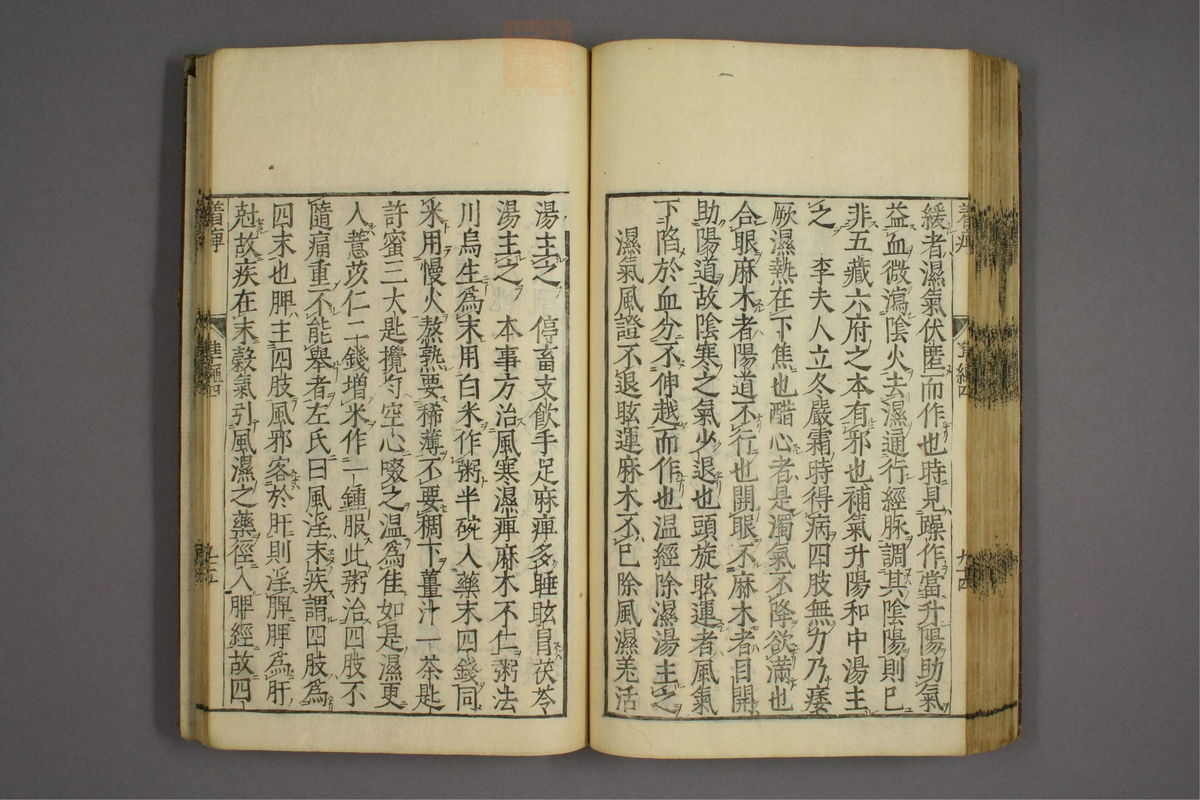 緩者濕氣伏匿而作也時見躁作當升陽助氣
益血微瀉陰火去濕通行經脉調其陰陽則已
非五藏六府之本有邪也補氣升陽和中湯主
之　李夫人立冬嚴霜時得病四肢無力乃痿
厥濕熱在下焦也醋心者是濁氣不降欲滿也
合眼麻木者陽道不行也開眼不麻木者目開
助陽道故陰寒之氣少退也頭旋眩運者風氣
下陷於血分不伸越而作也温經除濕湯主之
濕氣風證不退眩運麻木不已除風濕羗活
湯主之　停畜支飲手足麻痺多睡眩冒茯苓
湯主之　本事方治風寒濕痺麻木不仁粥法
川烏生爲末用白米作粥半碗入藥末四錢同
米用慢火熬熟要稀薄不要稠下薑汁一茶匙
許蜜三大匙攪匀空心啜之温爲佳如是濕更
入薏苡仁二錢増米作一鍾服此粥治四肢不
隨痛重不能舉者左氏曰風淫末疾謂四肢爲
四末也脾主四肢風邪客於肝則淫脾脾爲肝
尅故疾在末穀氣引風濕之藥徑入脾經故四
着痺